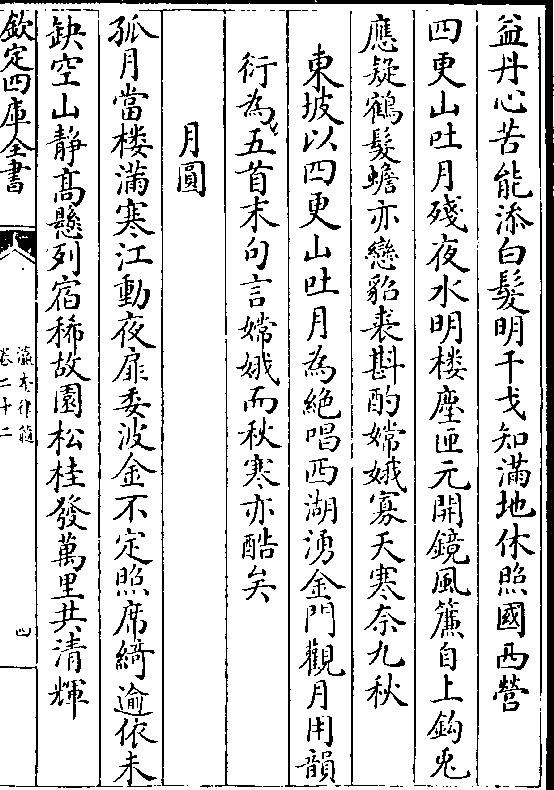 益丹心苦能添白髮明干戈知滿地休照國西營
四更山吐月殘夜水明樓塵匣元開鏡風簾自上鈎兎
應疑鶴髮蟾亦戀貂裘斟酌嫦娥寡天寒奈九秋
東坡以四更山吐月為絶唱西湖湧金門觀月用韻
衍為五首末句言嫦娥而秋寒亦酷矣
月圓
孤月當楼滿寒江動夜扉委波金不定照席綺逾依未
缺空山静髙懸列宿稀故園松桂發萬里共清輝
欽定四庫全書
瀛奎律髓
卷二十二
四